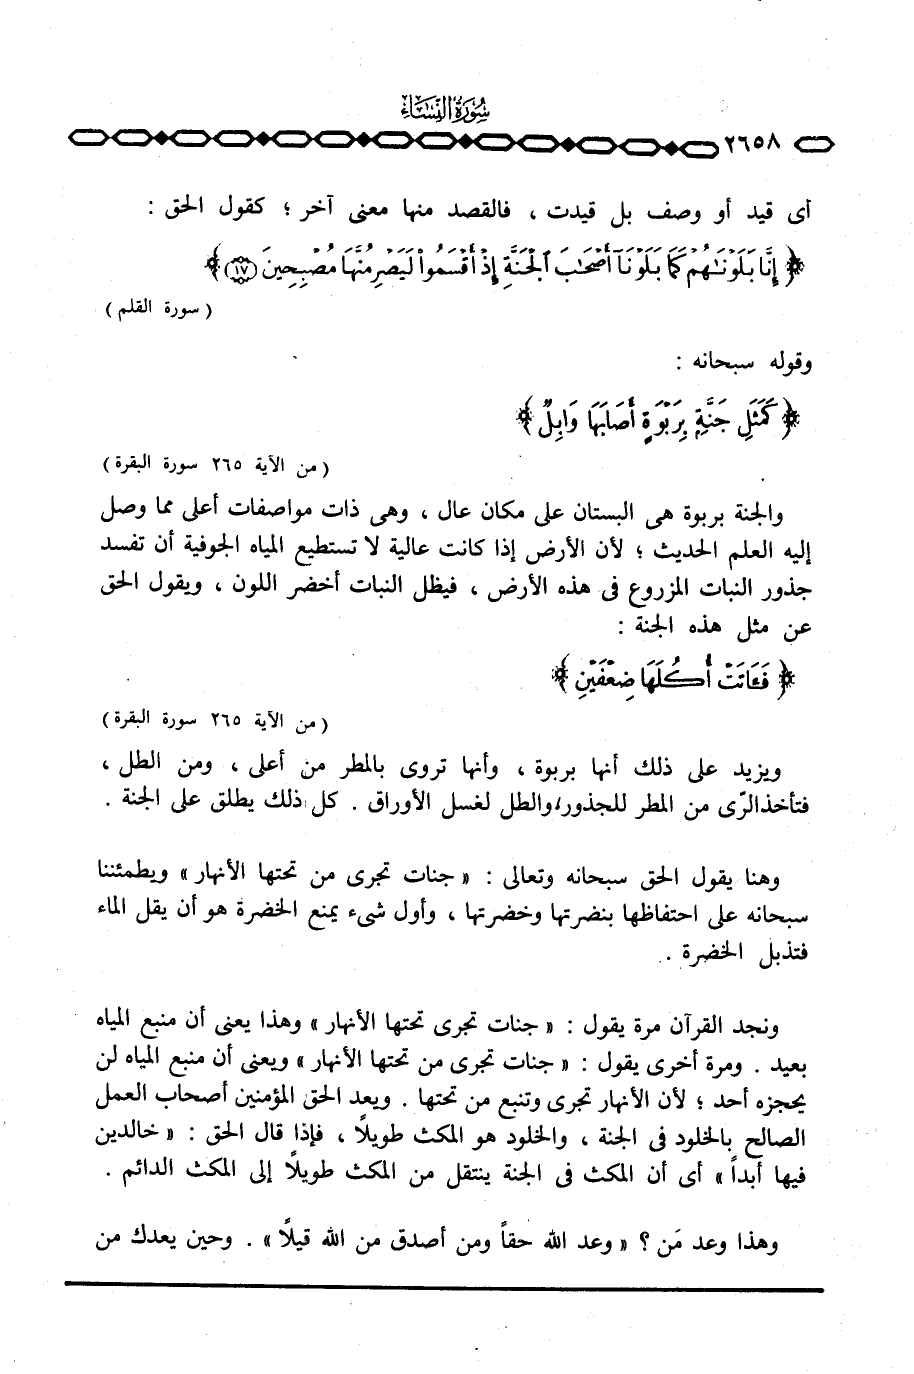 سُورَةُ النِّسَاءِ
٢٦٥٨
أى قيد أو وصف بل قيدت ، فالقصد منها معنى آخر ؛ كقول الحق :
﴿ إِنَّا بَلَوْنَٰهُمْ كَمَا بَلَوْنَآ أَصْحَٰبَ ٱلْجَنَّةِ إِذْ أَقْسَمُوا۟ لَيَصْرِمُنَّهَا مُصْبِحِينَ ﴿١٧﴾ ﴾
( سورة القلم )
وقوله سبحانه :
﴿ كَمَثَلِ جَنَّةٍۭ بِرَبْوَةٍ أَصَابَهَا وَابِلٌ ﴾
( من الآية ٢٦٥ سورة البقرة )
والجنة بربوة هى البستان على مكان عال ، وهى ذات مواصفات أعلى مما وصل
إليه العلم الحديث ؛ لأن الأرض إذا كانت عالية لا تستطيع المياه الجوفية أن تفسد
جذور النبات المزروع فى هذه الأرض ، فيظل النبات أخضر اللون ، ويقول الحق
عن مثل هذه الجنة :
﴿ فَـَٔاتَتْ أُكُلَهَا ضِعْفَيْنِ ﴾
( من الآية ٢٦٥ سورة البقرة )
ويزيد على ذلك أنها بربوة ، وأنها تروى بالمطر من أعلى ، ومن الطل ،
فتأخذ الرّى من المطر للجذور، والطل لغسل الأوراق . كل ذلك يطلق على الجنة .
وهنا يقول الحق سبحانه وتعالى : « جنات تجرى من تحتها الأنهار » ويطمئننا
سبحانه على احتفاظها بنضرتها وخضرتها ، وأول شىء يمنع الخضرة هو أن يقل الماء
فتذبل الخضرة .
ونجد القرآن مرة يقول : « جنات تجرى تحتها الأنهار » وهذا يعنى أن منبع المياه
بعيد . ومرة أخرى يقول : « جنات تجرى من تحتها الأنهار » ويعنى أن منبع المياه لن
يحجزه أحد ؛ لأن الأنهار تجرى وتنبع من تحتها . ويعد الحق المؤمنين أصحاب العمل
الصالح بالخلود فى الجنة ، والخلود هو المكث طويلًا ، فإذا قال الحق : « خالدين
فيها أبداً » أى أن المكث فى الجنة ينتقل من المكث طويلًا إلى المكث الدائم .
وهذا وعد مَن ؟ « وعد الله حقاً ومن أصدق من الله قيلًا » . وحين يعدك من